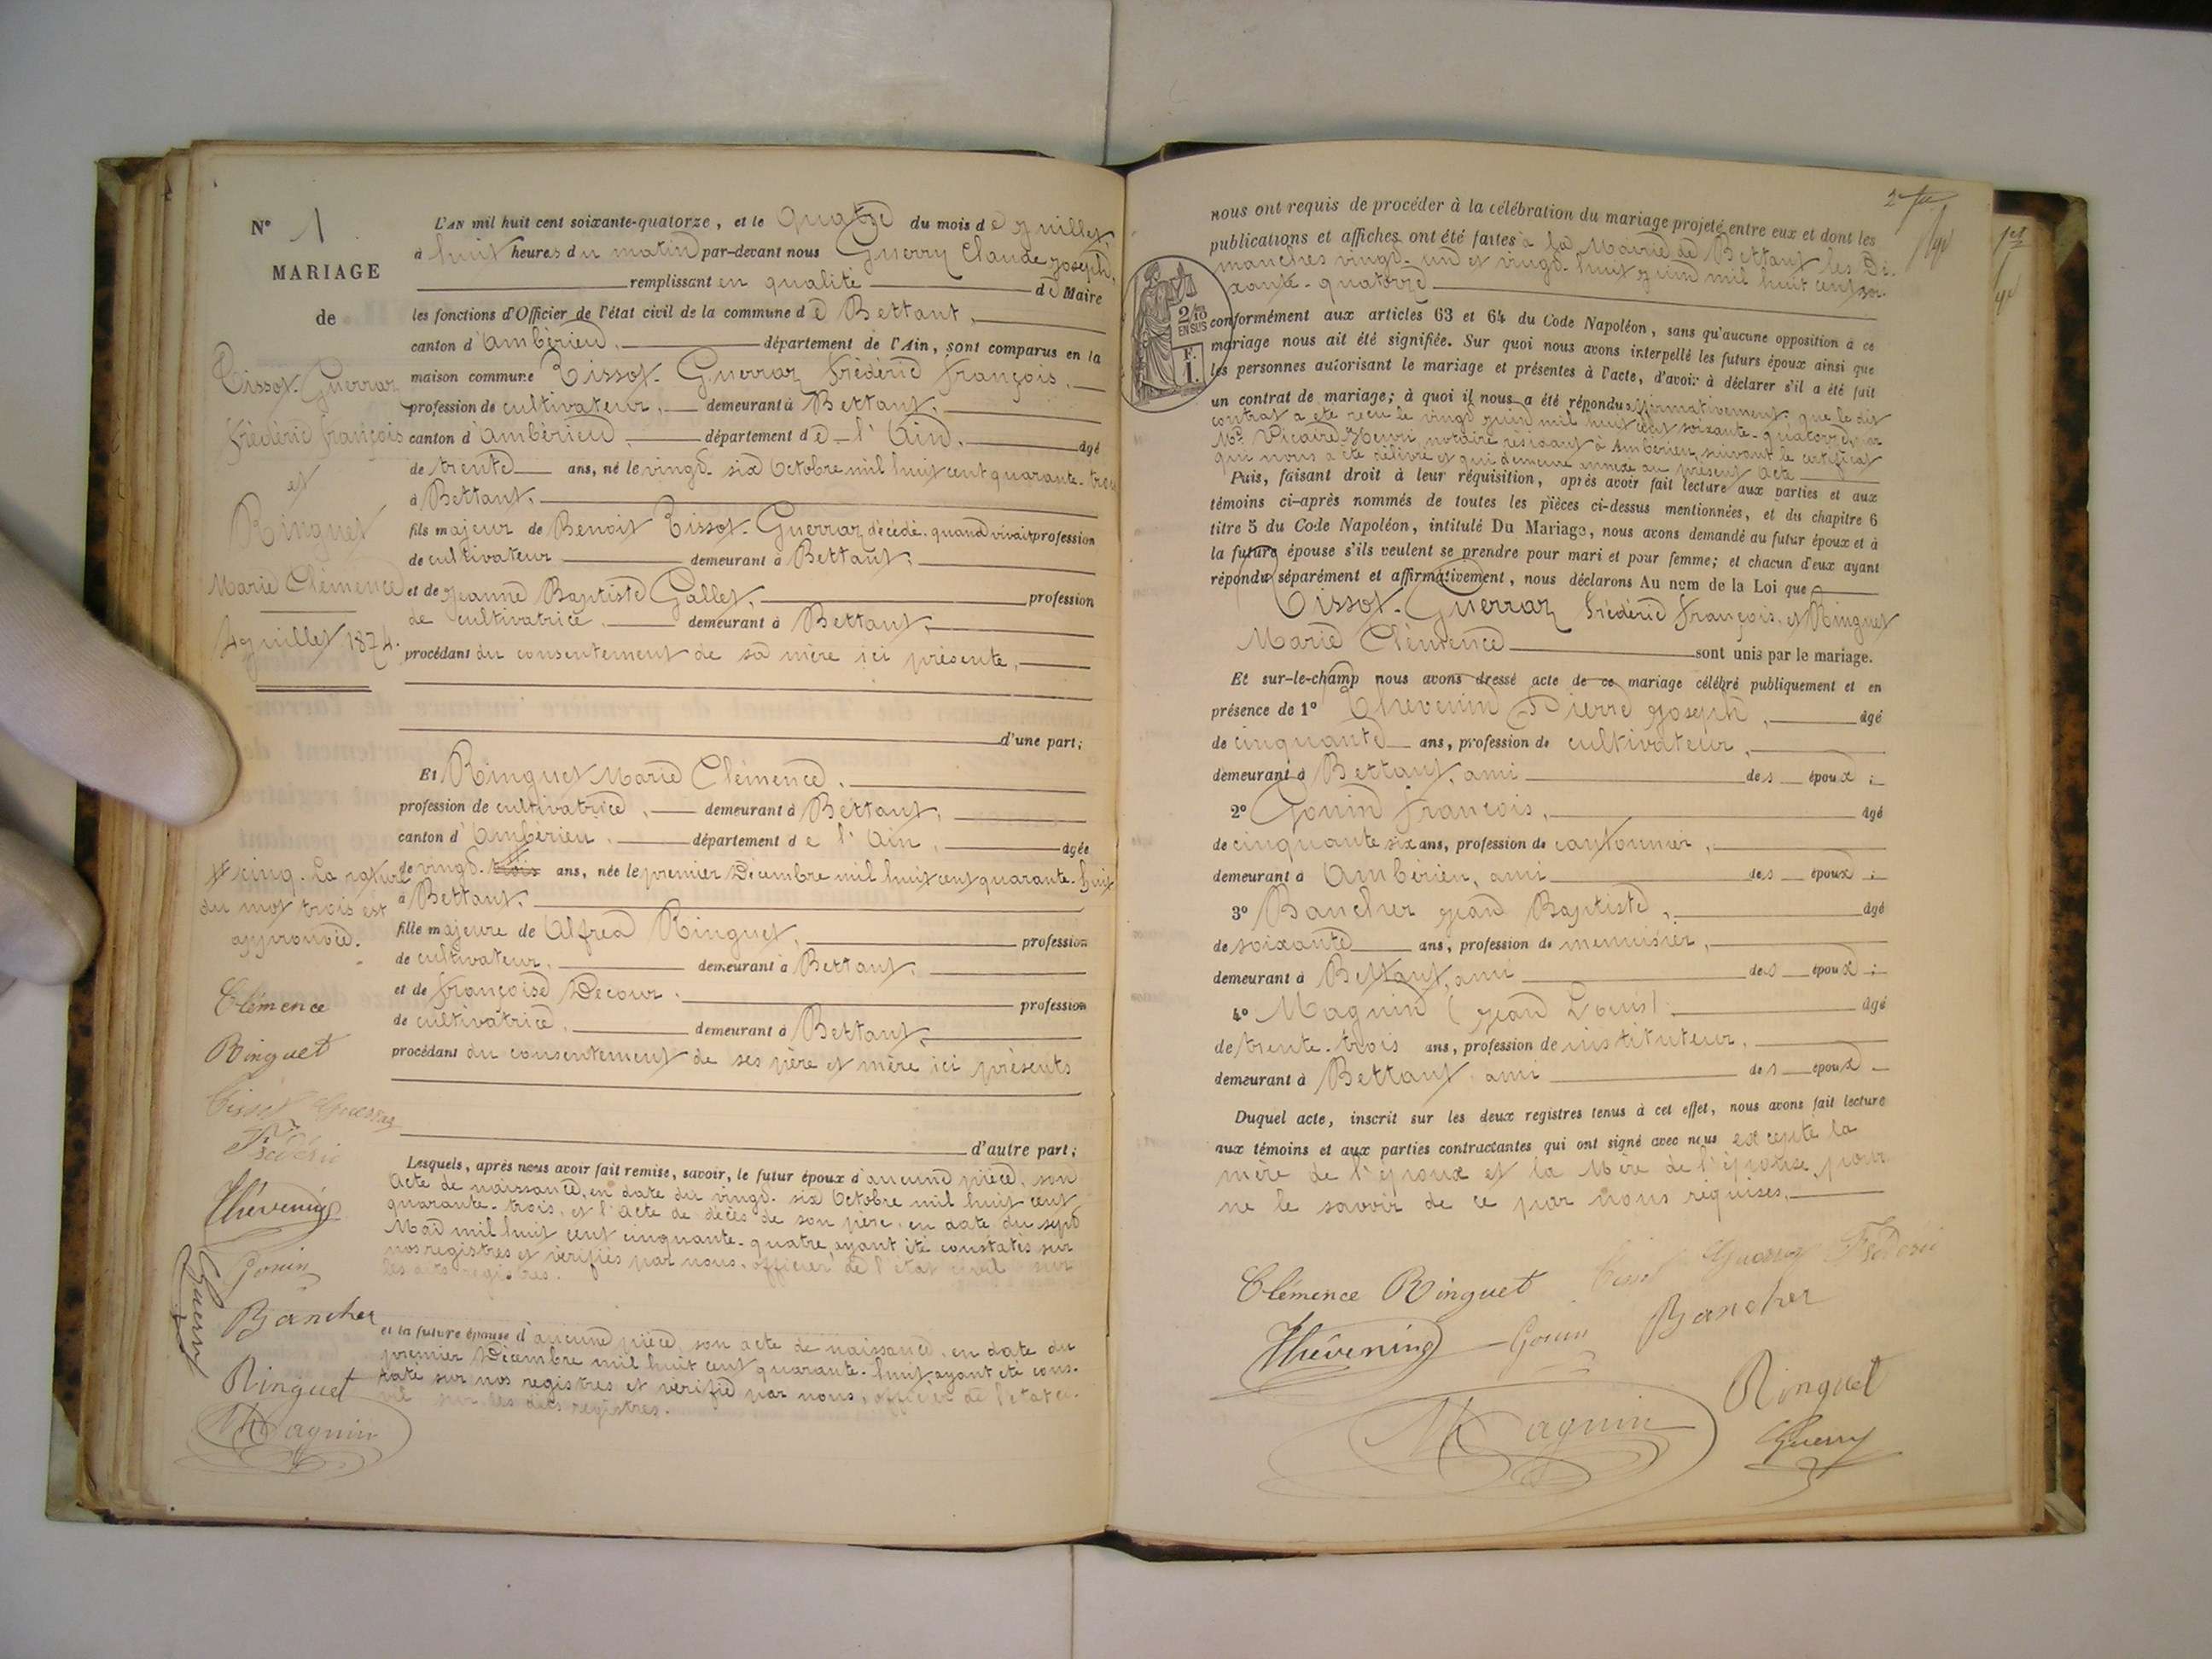 N° 1
MARIAGE
de
Tissot-Guerraz
Frédéric François
et
Ringuet
Marie Clémence
4 Juillet 1874.
L'AN mil huit cent soixante-quatorze, et le quatre du mois de Juillet,
à huit heures du matin par-devant nous Guerry Claude Joseph,
remplissant en qualité de Maire
les fonctions d'Officier de l'état civil de la commune de Bettant,
canton d'Ambérieu, département de l'Ain, sont comparus en la
maison commune Tissot-Guerraz Frédéric François,
profession de cultivateur, demeurant à Bettant,
canton d'Ambérieu, département de l'Ain, âgé
de trente ans, né le vingt-six Octobre mil huit cent quarante-trois
à Bettant,
fils majeur de Benoit Tissot-Guerraz décédé, quand vivait profession
de cultivateur demeurant à Bettant,
et de Jeanne Baptiste Gallet, profession
de cultivatrice, demeurant à Bettant,
procédant du consentement de sa mère ici présente,
d'une part;
Et Ringuet Marie Clémence,
profession de cultivatrice, demeurant à Bettant,
canton d'Ambérieu, département de l'Ain, âgée
de vingt-trois ans, née le premier Décembre mil huit cent quarante-huit
à Bettant,
fille majeure de Alfred Ringuet, profession
de cultivateur, demeurant à Bettant,
et de Françoise Decour, profession
de cultivatrice, demeurant à Bettant,
procédant du consentement de ses père et mère ici présents
d'autre part;
cinq. La rature
du mot trois est
approuvée.
Clémence
Ringuet
Tissot Guerraz
Frédéric
Thévenin
Gonin
Guerry
Bancher
Ringuet
Magnin
Lesquels, après nous avoir fait remise, savoir, le futur époux d'aucune pièce, son
Acte de naissance, en date du vingt-six Octobre mil huit cent
quarante-trois, et l'Acte de décès de son père, en date du sept
Mai mil huit cent cinquante-quatre, ayant été constatés sur
nos registres et vérifiés par nous, officier de l'état civil sur
les dits registres.
et la future épouse d'aucune pièce, son acte de naissance, en date du
premier Décembre mil huit cent quarante-huit ayant été cons-
taté sur nos registres et vérifié par nous, officier de l'état ci-
vil sur les dits registres.
nous ont requis de procéder à la célébration du mariage projeté entre eux et dont les
publications et affiches ont été faites à la Mairie de Bettant les Di-
manches vingt-un et vingt-huit Juin mil huit cent soi-
xante-quatorze
2/10
EN SUS
F.
1.
conformément aux articles 63 et 64 du Code Napoléon, sans qu'aucune opposition à ce
mariage nous ait été signifiée. Sur quoi nous avons interpellé les futurs époux ainsi que
les personnes autorisant le mariage et présentes à l'acte, d'avoir à déclarer s'il a été fait
un contrat de mariage; à quoi il nous a été répondu affirmativement, que le dit
contrat a été reçu le vingt Juin mil huit cent soixante-quatorze, par
Me Vicaire Henri, notaire résidant à Ambérieu, suivant le certificat
qui nous a été délivré et qui demeure annexé au présent Acte
Puis, faisant droit à leur réquisition, après avoir fait lecture aux parties et aux
témoins ci-après nommés de toutes les pièces ci-dessus mentionnées, et du chapitre 6
titre 5 du Code Napoléon, intitulé Du Mariage, nous avons demandé au futur époux et à
la future épouse s'ils veulent se prendre pour mari et pour femme; et chacun d'eux ayant
répondu séparément et affirmativement, nous déclarons Au nom de la Loi que
Tissot-Guerraz Frédéric François, et Ringuet
Marie Clémence sont unis par le mariage.
Et sur-le-champ nous avons dressé acte de ce mariage célébré publiquement et en
présence de 1° Thévenin Pierre Joseph, âgé
de cinquante ans, profession de cultivateur,
demeurant à Bettant, ami des époux;
2° Gonin François, âgé
de cinquante six ans, profession de cantonnier,
demeurant à Ambérieu, ami des époux;
3° Bancher Jean Baptiste, âgé
de soixante ans, profession de menuisier,
demeurant à Bettant, ami des époux;
4° Magnin (Jean Louis) âgé
de trente-trois ans, profession de instituteur,
demeurant à Bettant ami des époux
Duquel acte, inscrit sur les deux registres tenus à cet effet, nous avons fait lecture
aux témoins et aux parties contractantes qui ont signé avec nous excepté la
mère de l'époux et la Mère de l'épouse, pour
ne le savoir de ce par nous requises,
Clémence Ringuet Tissot Guerraz Frédéric
Thévenin Gonin Bancher
Ringuet
Magnin
Guerry